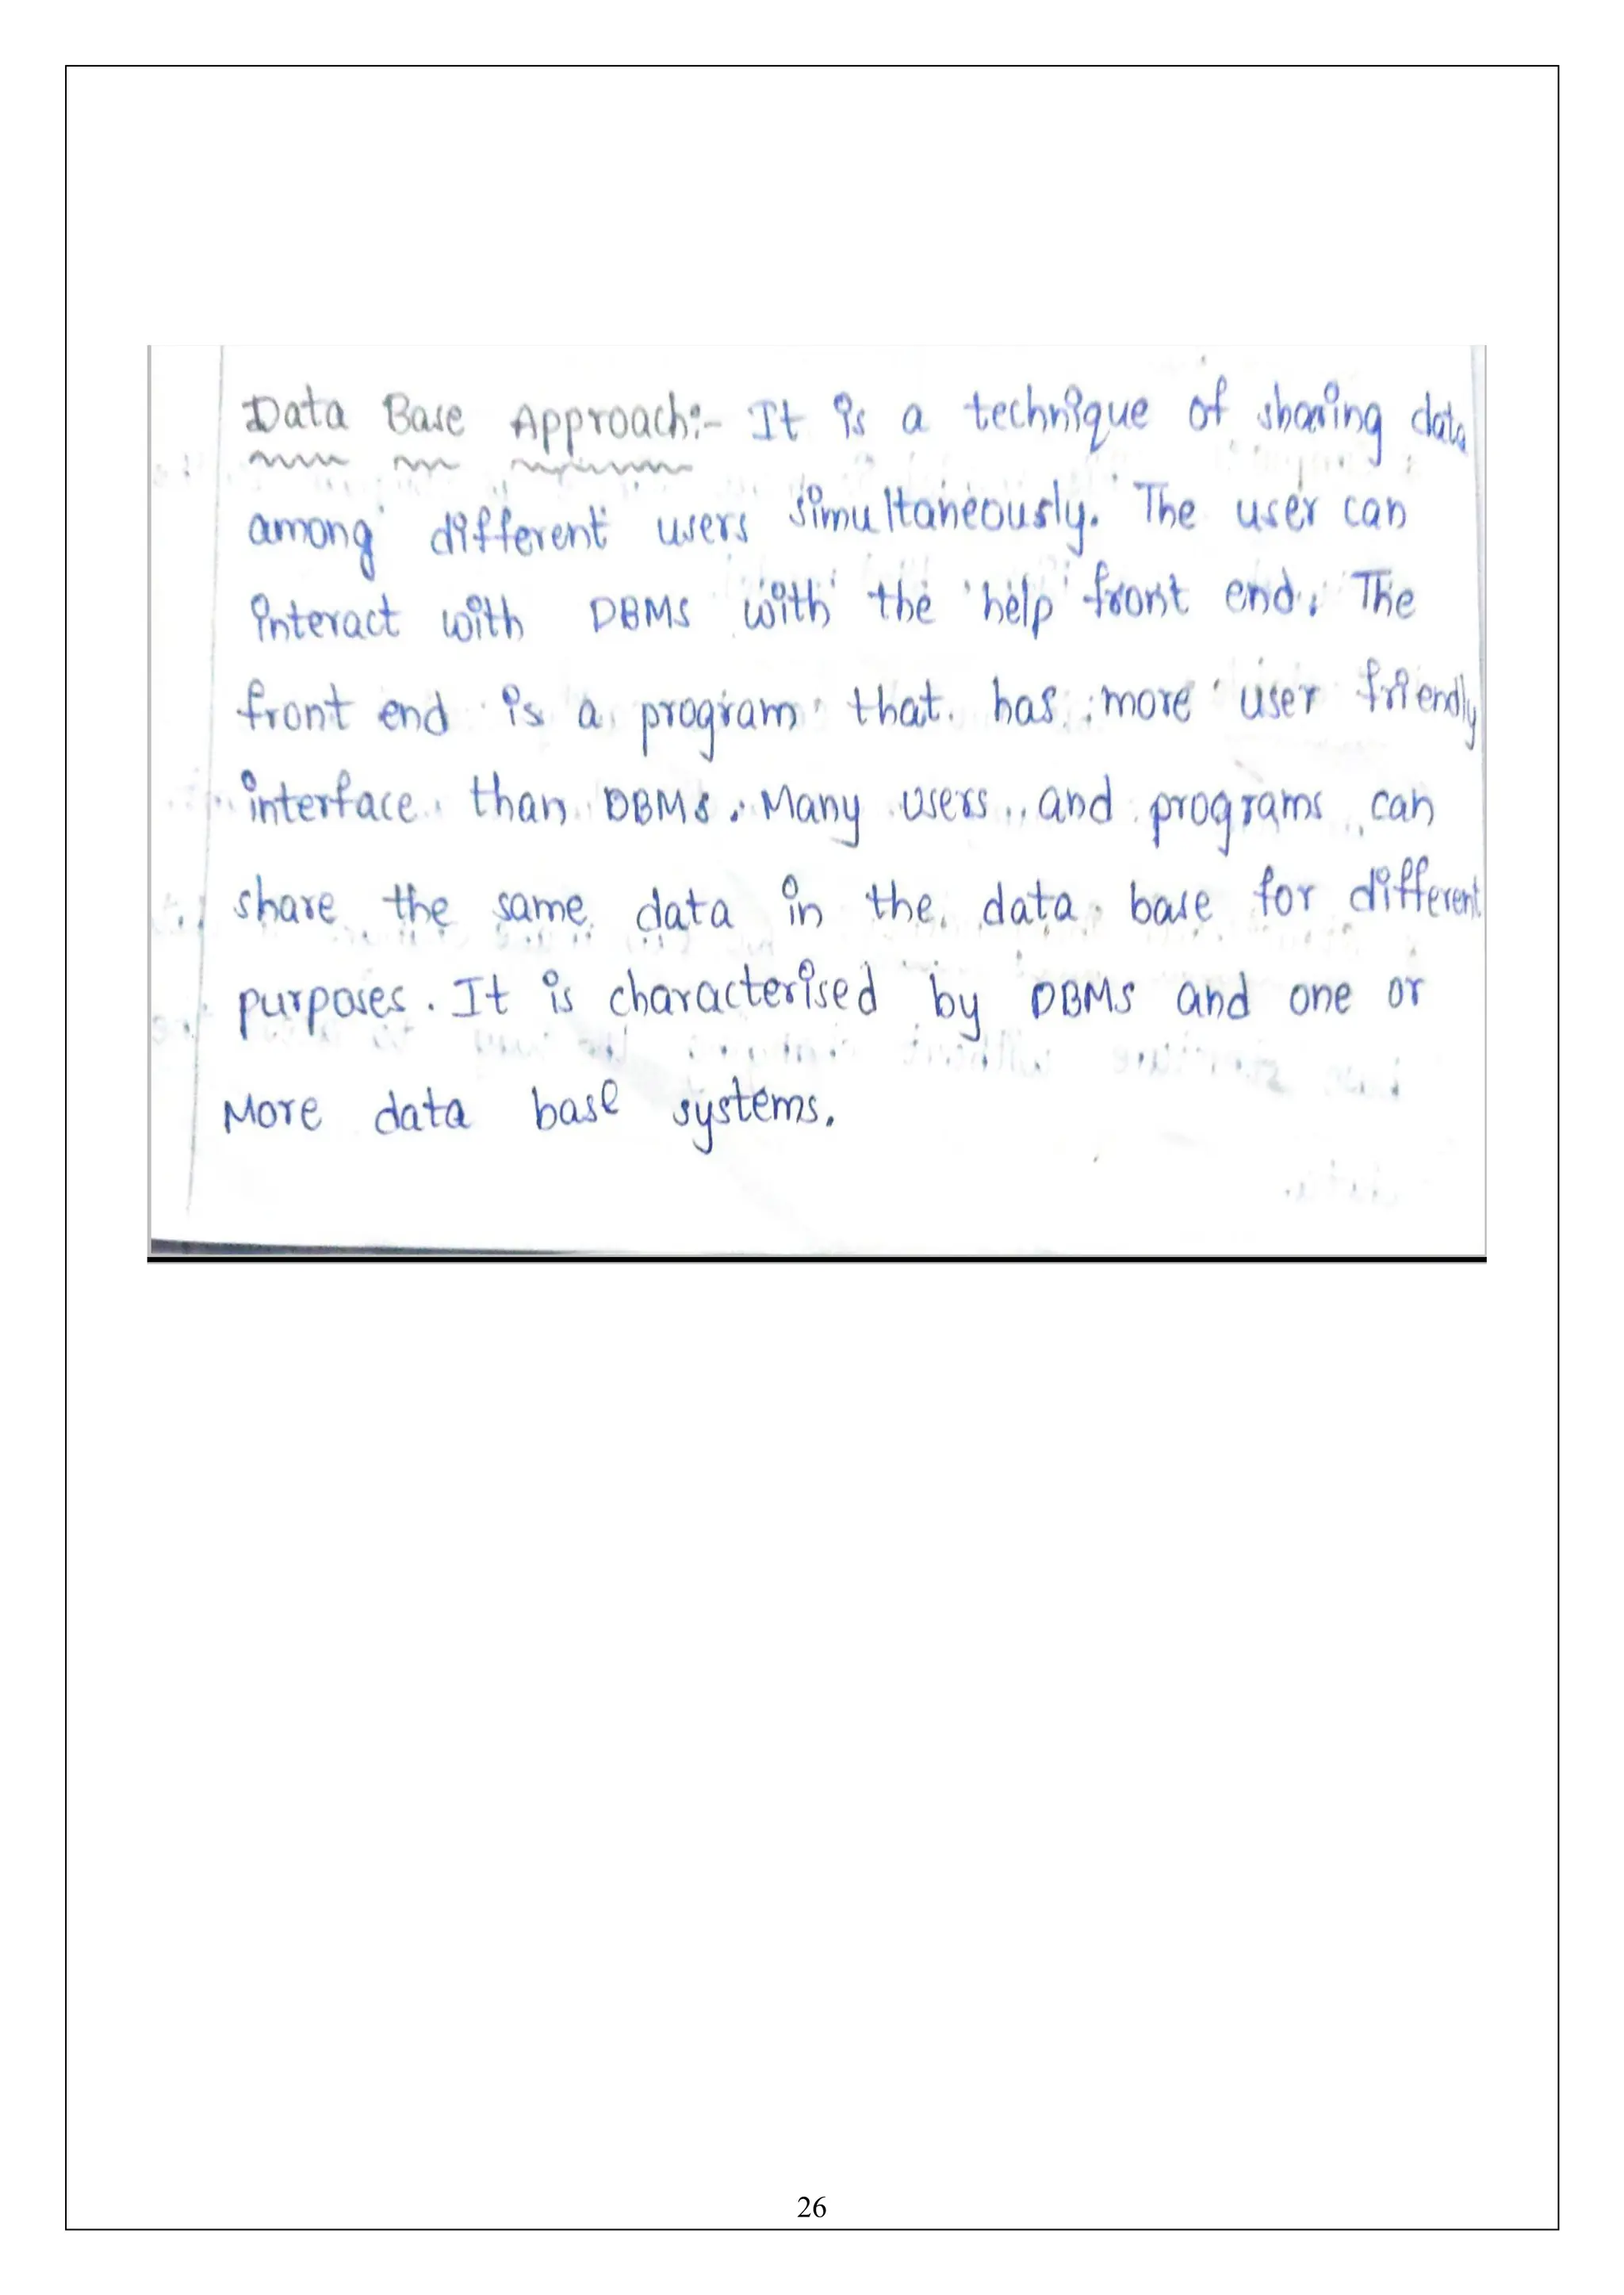 Data Base Approach:- It is a technique of sharing data
among different users simultaneously. The user can
interact with DBMS with the help front end. The
front end is a program that has more user friendly
interface than DBMS. Many users and programs can
share the same data in the data base for different
purposes. It is characterised by DBMS and one or
More data base systems.
26